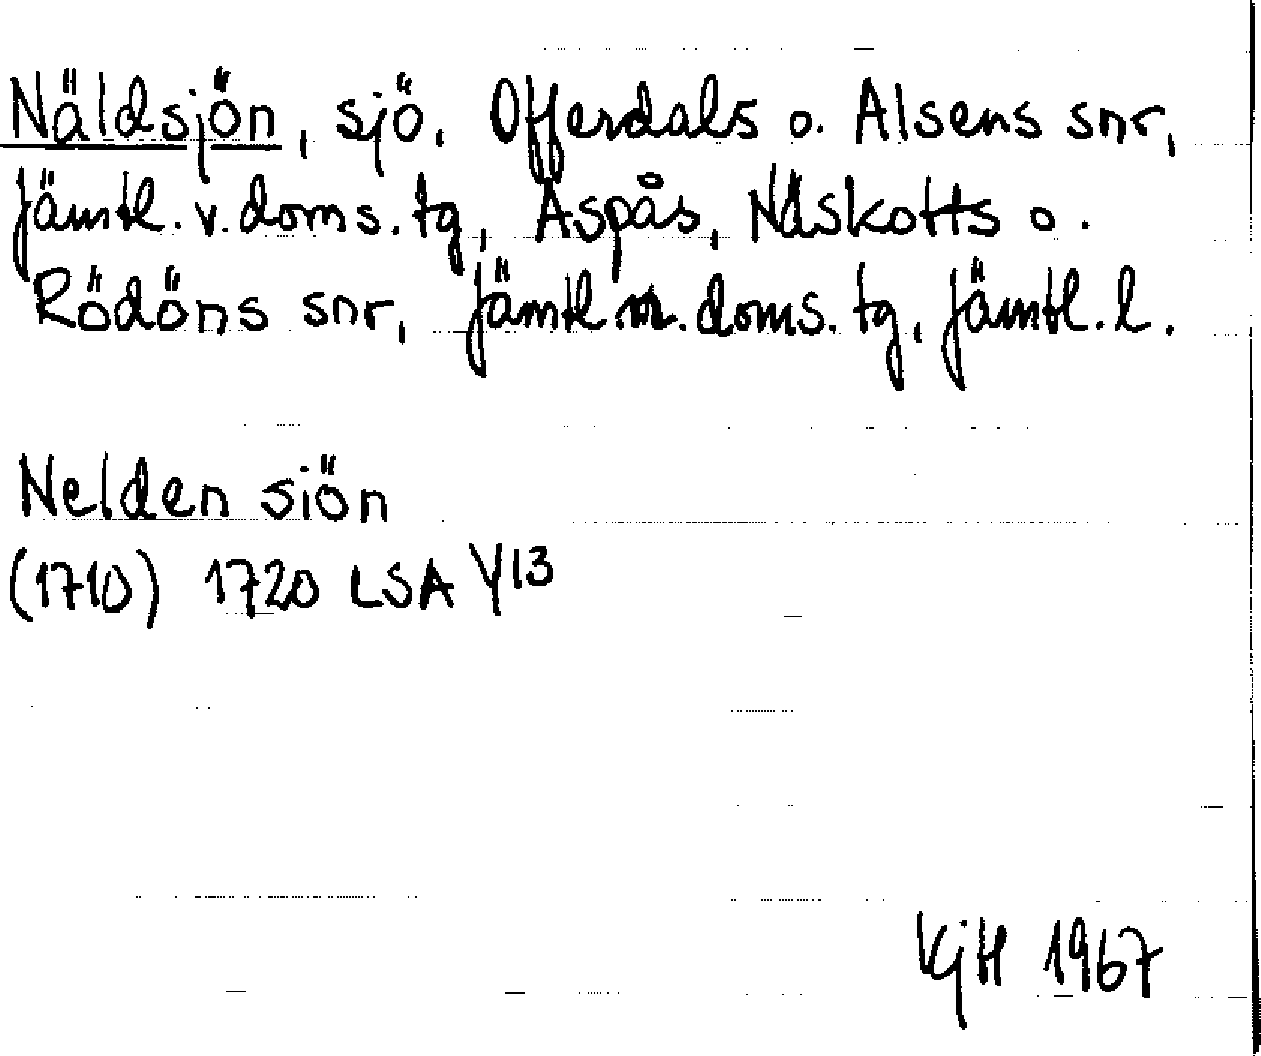 Näldsjön, sjö, Offerdals o. Alsens snr,
Jämtl. v. doms. tg, Aspås, Näskotts o.
Rödöns snr, Jämtl. m. doms. tg, Jämtl. l.
Nelden siön
(1710) 1720 LSA Y13
KjH 1967